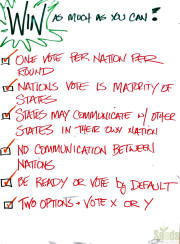 WIN AS MUCH AS YOU CAN!
ONE VOTE PER NATION PER
ROUND
NATIONS VOTE IS MAJORITY OF
STATES
STATES MAY COMMUNICATE W/ OTHER
STATES IN THEIR OWN NATION
NO COMMUNICATION BETWEEN
NATIONS
BE READY OR VOTE by DEFAULT
TWO OPTIONS - VOTE X OR Y